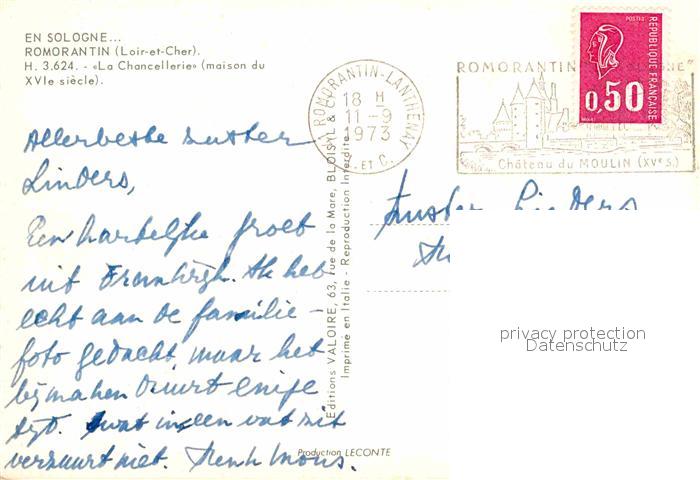 EN SOLOGNE...
ROMORANTIN (Loir-et-Cher).
H. 3.624. - «La Chancellerie» (maison du
XVIe siècle).
ROMORANTIN-LANTHENAY
18 H
11-9
1973
L. ET C.
ROMORANTIN
Château du MOULIN (XVe S.)
POSTES
RÉPUBLIQUE FRANÇAISE
0,50
Allerbeste zuster
Linders,
Een hartelijke groet
uit Frankrijk. Ik heb
echt aan de familie-
foto gedacht, maar het
bijmaken duurt enige
tijd. wat in een vat zit
verzuurt niet. Henk
Zuster Linders
Editions VALOIRE, 63, rue de la Mare, BLOIS
Imprimé en Italie - Reproduction Interdite
Production LECONTE
privacy protection
Datenschutz